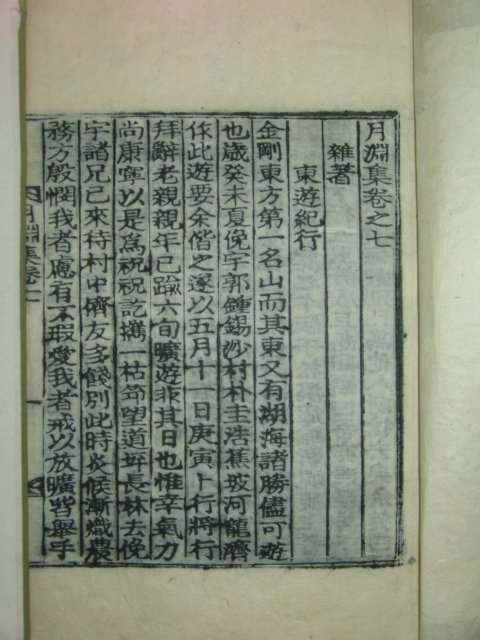 月淵集卷之七
雜著
東遊紀行
金剛東方第一名山而其東又有湖海諸勝儘可遊
也歲癸未夏俛宇郭鍾錫沙村朴圭浩蕉坡河龍濟
作此遊要余偕之遂以五月十一日庚寅卜行將行
拜辭老親親年已踰六旬曠遊非其日也惟幸氣力
尚康寧以是爲祝祝訖携一枯筇望道坪長林去俛
宇諸兄已來待村中儕友多餞別此時炎候漸熾農
務方殷憫我者慮有不暇愛我者戒以放曠皆舉字
月淵集卷